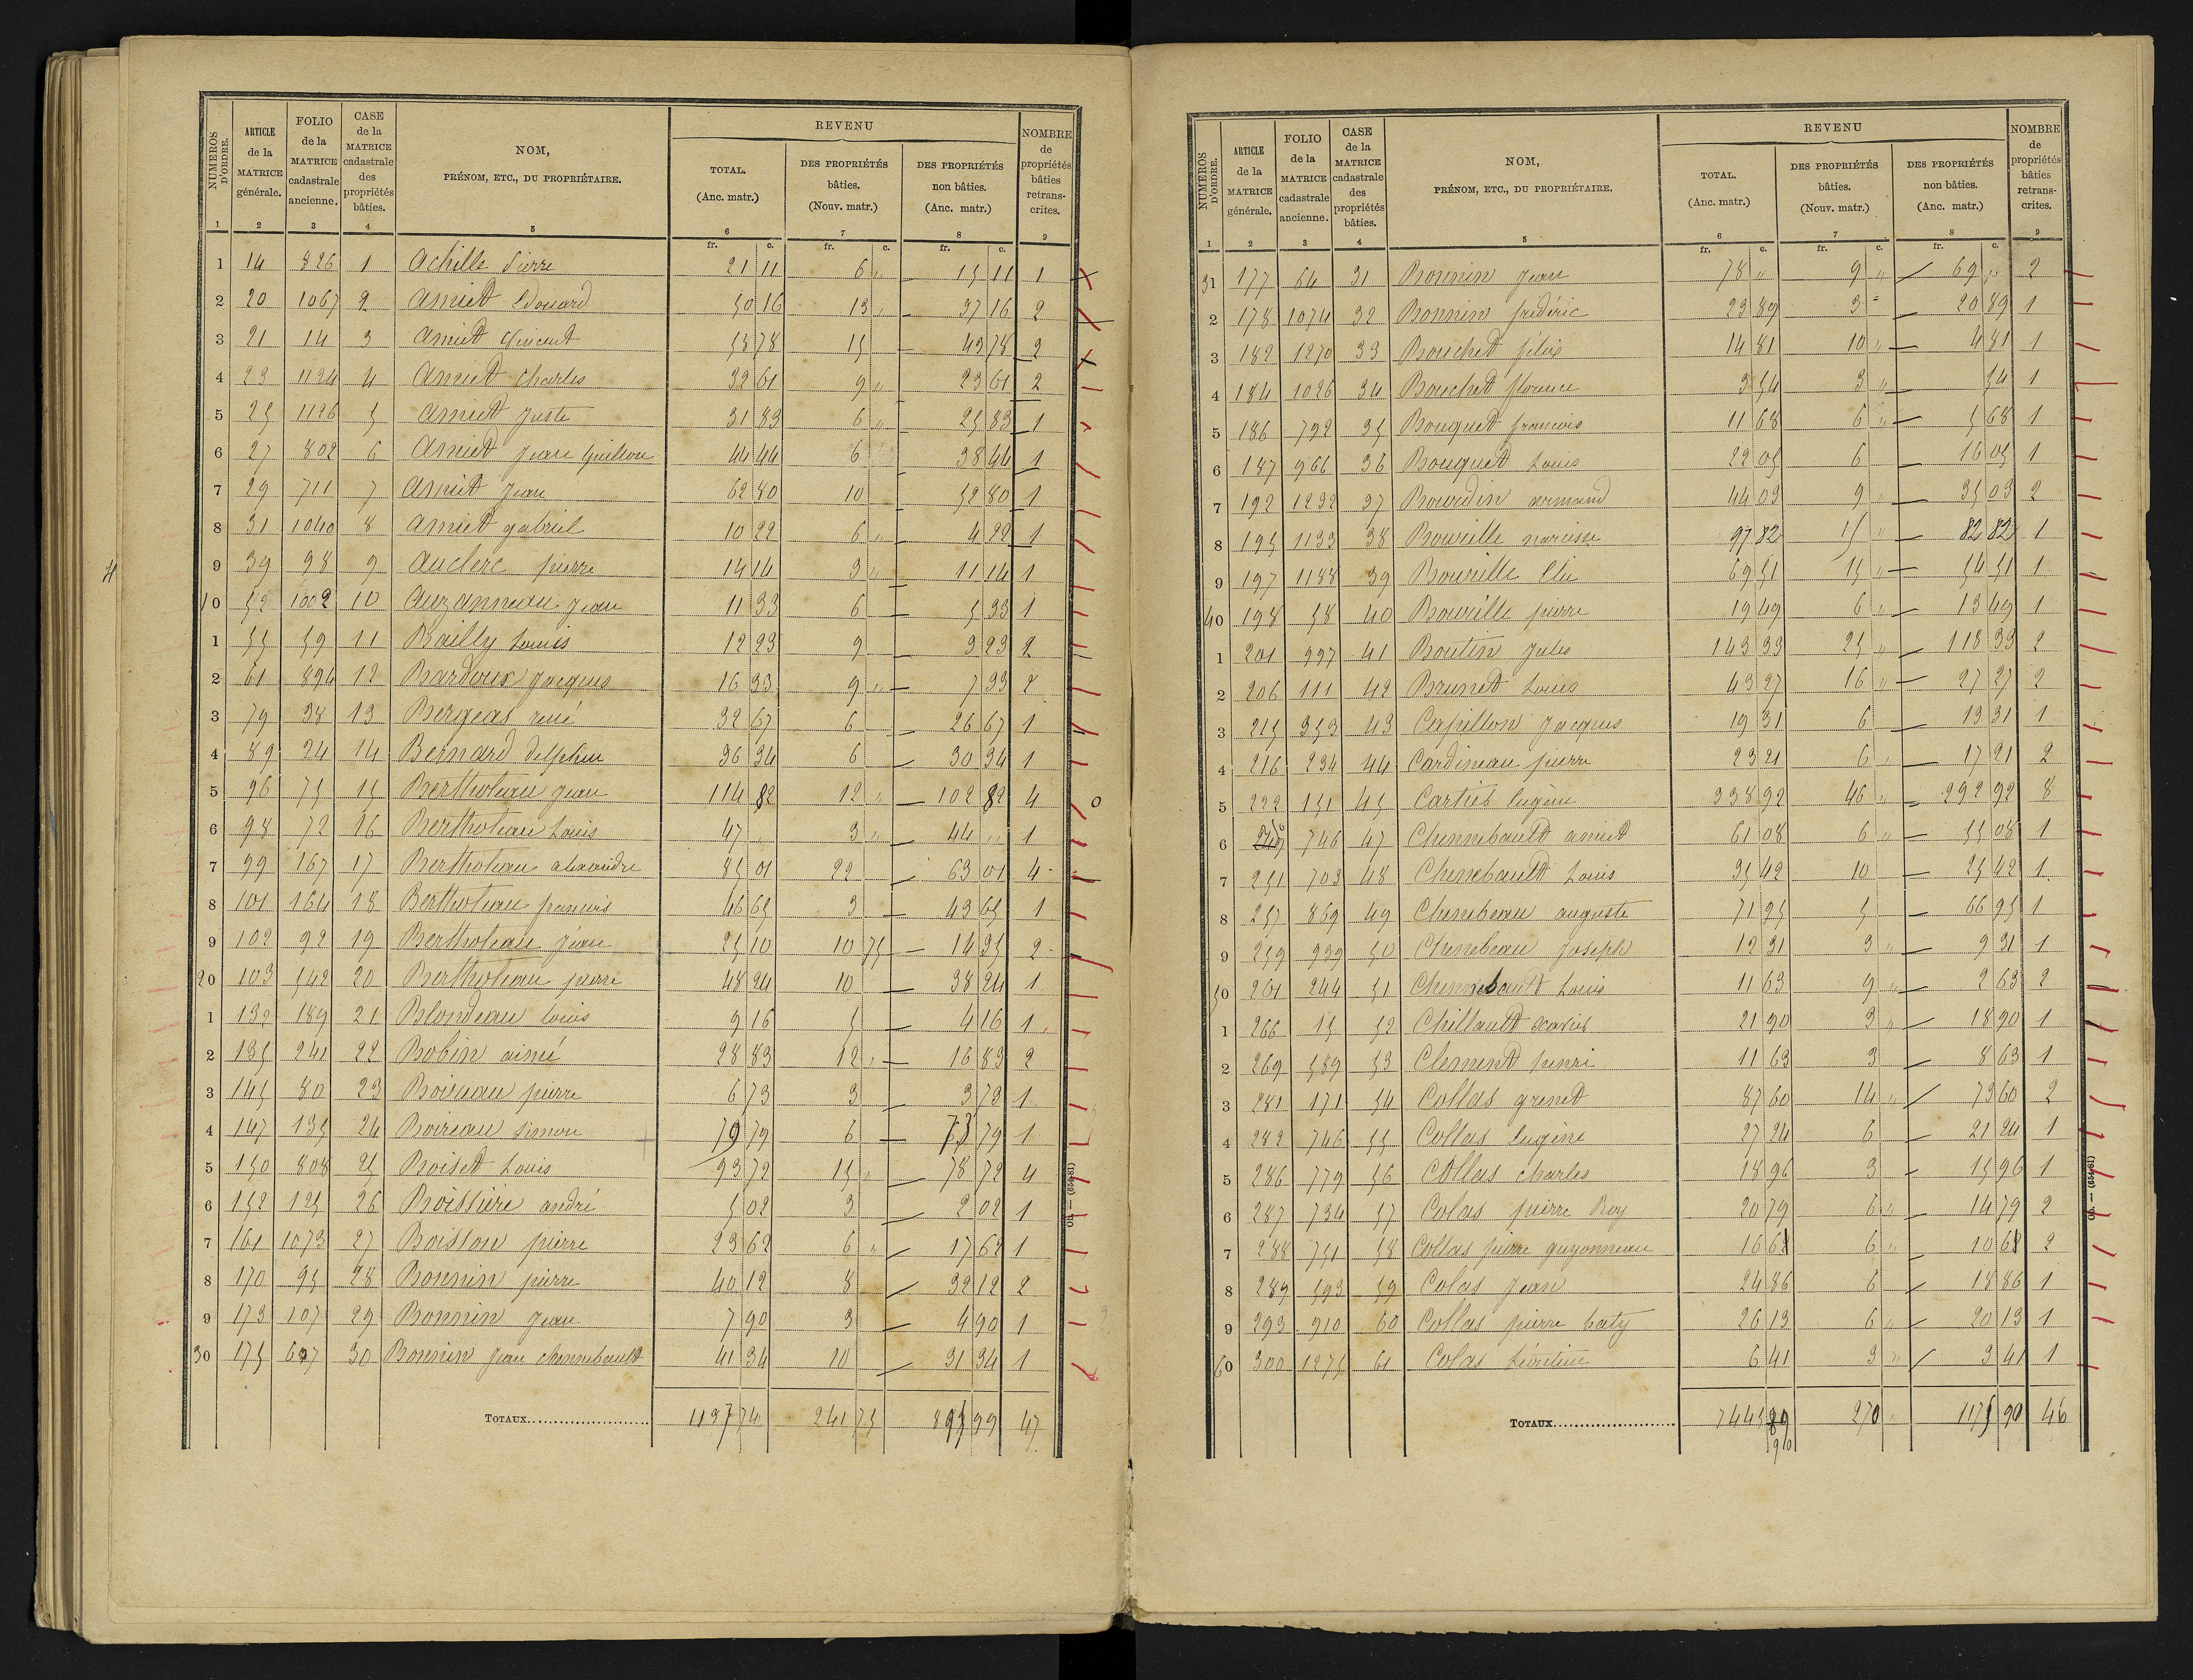 NUMÉROS D'ORDRE. | ARTICLE de la MATRICE générale. | FOLIO de la MATRICE cadastrale ancienne. | CASE de la MATRICE cadastrale des propriétés bâties. | NOM, PRÉNOM, ETC., DU PROPRIÉTAIRE. | REVENU TOTAL. (Anc. matr.) | DES PROPRIÉTÉS bâties. (Nouv. matr.) | DES PROPRIÉTÉS non bâties. (Anc. matr.) | NOMBRE de propriétés bâties retranscrites.
1 2 3 4 5 6 7 8 9
fr. c. fr. c. fr. c.
1 14 826 1 Achille Pierre 21 11 6 " 15 11 1
2 20 1067 2 Amiet Edouard 50 16 13 " 37 16 2
3 21 14 3 Amiet Vincent 58 78 15 43 78 2
4 23 1124 4 Amiet Charles 32 61 9 " 23 61 2
5 25 1126 5 Amiet Juste 31 83 6 " 25 83 1
6 27 802 6 Amiet Jean Guillon 44 44 6 38 44 1
7 29 711 7 Amiet Jean 62 80 10 52 80 1
8 31 1040 8 Amiet gabriel 10 22 6 " 4 22 1
9 39 98 9 Auclerc pierre 14 14 3 " 11 14 1
10 52 1002 10 Auzanneau Jean 11 33 6 5 33 1
1 55 59 11 Bailly Louis 12 23 9 3 23 2
2 61 894 12 Bardoux Jacques 16 33 9 " 7 33 2
3 79 38 13 Bergeas réné 32 67 6 26 67 1
4 89 24 14 Bernard delphin 36 34 6 30 34 1
5 96 75 15 Bertholeau Jean 114 82 12 " 102 82 4 0
6 98 72 16 Bertholeau Louis 47 " 3 " 44 " 1
7 99 167 17 Bertholeau alexandre 85 01 22 63 01 4
8 101 164 18 Bertholeau françois 46 65 3 43 65 1
9 102 92 19 Bertholeau Jean 25 10 10 75 14 35 2
20 103 542 20 Bertholeau pierre 48 24 10 38 24 1
1 132 189 21 Blondeau louis 9 16 5 4 16 1
2 135 241 22 Bobin aimé 28 83 12 " 16 83 2
3 145 80 23 Boireau pierre 6 73 3 3 73 1
4 147 135 24 Boireau Simon 79 79 6 73 79 1
5 150 808 25 Boiset Louis 93 72 15 " 78 72 4
6 152 125 26 Boissière andré 5 02 3 2 02 1
7 161 1073 27 Boisson pierre 23 62 6 " 17 62 1
8 170 95 28 Bonnin pierre 40 12 8 32 12 2
9 173 107 29 Bonnin Jean 7 90 3 4 90 1
30 175 697 30 Bonnin Jean chennebault 41 34 10 31 34 1
TOTAUX 1137 74 241 75 895 99 47
NUMÉROS D'ORDRE. | ARTICLE de la MATRICE générale. | FOLIO de la MATRICE cadastrale ancienne. | CASE de la MATRICE cadastrale des propriétés bâties. | NOM, PRÉNOM, ETC., DU PROPRIÉTAIRE. | REVENU TOTAL. (Anc. matr.) | DES PROPRIÉTÉS bâties. (Nouv. matr.) | DES PROPRIÉTÉS non bâties. (Anc. matr.) | NOMBRE de propriétés bâties retranscrites.
1 2 3 4 5 6 7 8 9
fr. c. fr. c. fr. c.
31 177 64 31 Bonnin Jean 78 " 9 " 69 " 2
2 178 1074 32 Bonnin frédéric 23 89 3 " 20 89 1
3 182 1270 33 Bouchet félix 14 81 10 " 4 81 1
4 184 1026 34 Bouchet florence 3 54 3 " 54 1
5 186 792 35 Bouquet francois 11 68 6 " 5 68 1
6 187 966 36 Bouquet Louis 22 05 6 16 05 1
7 192 1232 37 Bourdin armand 44 03 9 " 35 03 2
8 195 1133 38 Bourille narcisse 97 82 15 " 82 82 1
9 197 1188 39 Bourille Elie 69 51 15 " 54 51 1
40 198 58 40 Bourille pierre 19 49 6 " 13 49 1
1 201 997 41 Boutin Jules 143 33 25 " 118 33 2
2 206 111 42 Brunet Louis 43 27 16 " 27 27 2
3 215 353 43 Capillon Jacques 19 31 6 13 31 1
4 216 234 44 Cardineau pierre 23 21 6 " 17 21 2
5 222 151 45 Cartier Eugène 338 92 46 " 292 92 8
6 746 47 Chennebault amiet 61 08 6 " 55 08 1
7 251 703 48 Chenebault Louis 35 42 10 25 42 1
8 257 869 49 Chenebeau auguste 71 95 5 66 95 1
9 259 939 50 Chenebeau Joseph 12 31 3 " 9 31 1
50 261 244 51 Chennebault Louis 11 63 9 " 2 63 2
1 266 15 52 Chillault Xavier 21 90 3 " 18 90 1
2 269 589 53 Clement henri 11 63 3 8 63 1
3 281 171 54 Collas grenet 87 60 14 " 73 60 2
4 282 746 55 Collas Eugène 27 24 6 21 24 1
5 286 779 56 Collas Charles 18 96 3 15 96 1
6 287 734 57 Colas pierre Roy 20 79 6 " 14 79 2
7 288 751 58 Collas pierre guyonneau 16 68 6 " 10 68 2
8 289 593 59 Colas Jean 24 86 6 18 86 1
9 293 910 60 Collas pierre baty 26 13 6 " 20 13 1
60 300 1275 61 Colas Léontine 6 41 3 " 3 41 1
TOTAUX 1445 89 270 " 1175 90 46
90